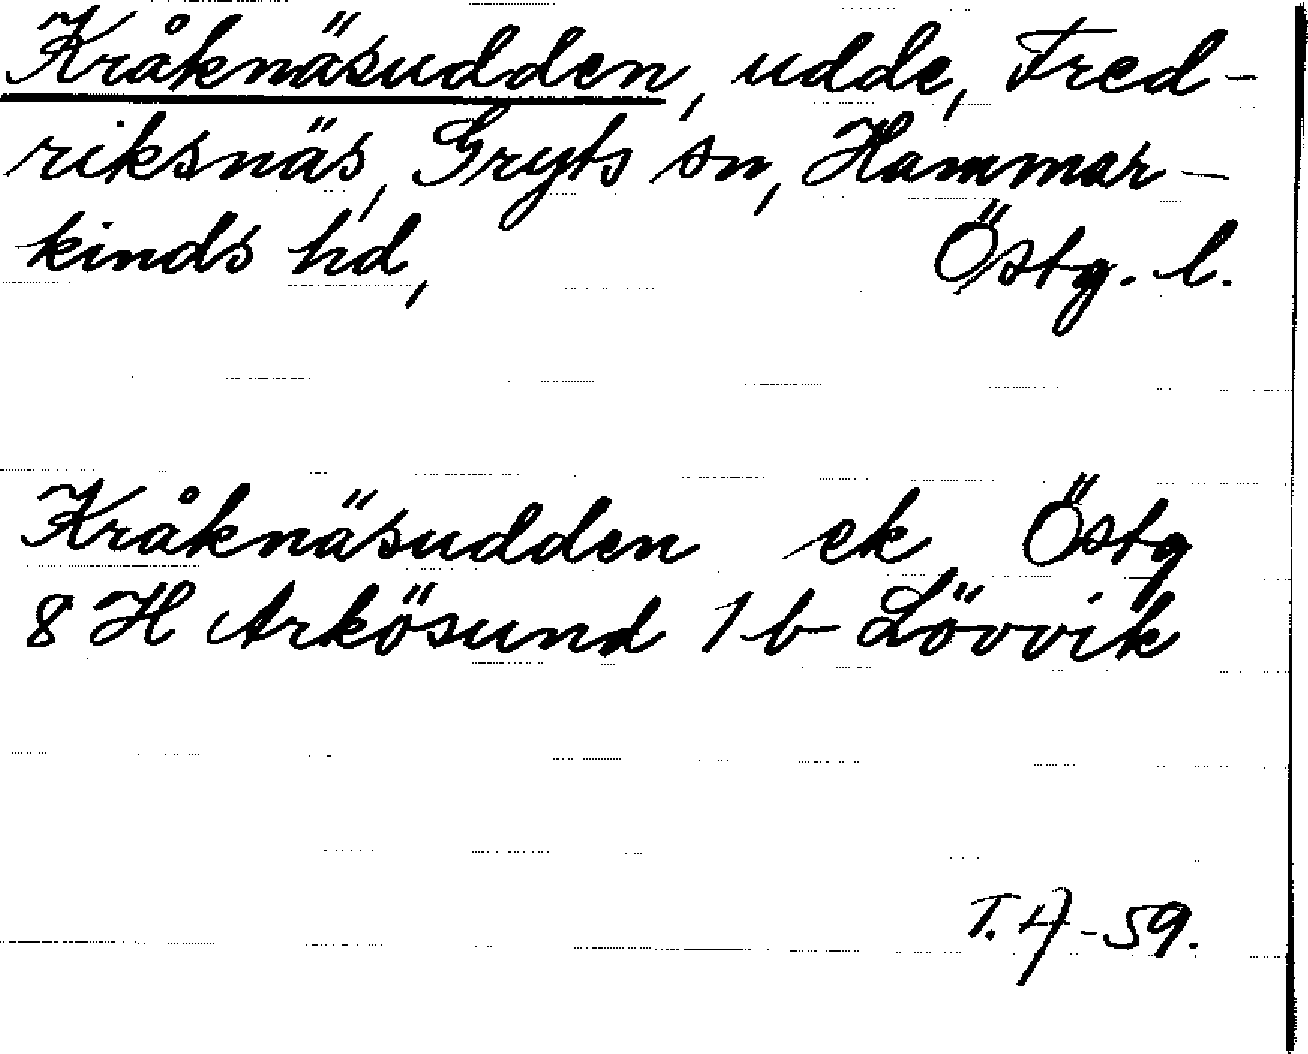 Kråknäsudden, udde, Fred-
riksnäs, Gryts sn, Hammar-
kinds hd, Östg. l.
Kråknäsudden ek Östg
8 H Arkösund 1 b Lövvik
T. A-59.